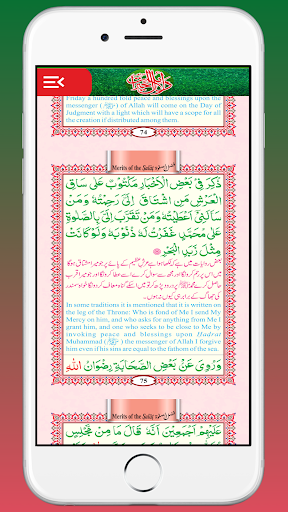 Friday a hundred fold peace and blessings upon the
messenger (ﷺ) of Allah will come on the Day of
Judgment with a light which will have a scope for all
the creation if distributed among them.
74
Merits of the Salāt
ذُكِرَ فِي بَعْضِ الْأَخْبَارِ مَكْتُوبٌ عَلَى سَاقِ
الْعَرْشِ مَنِ اشْتَاقَ إِلَى رَحِمْتُهٗ وَمَنْ
سَاَلَنِي اَعْطَيْتُهٗ وَمَنْ تَقَرَّبَ اِلَيَّ بِالصَّلٰوةِ
عَلٰى مُحَمَّدٍ غَفَرْتُ لَهٗ ذُنُوْبَهٗ وَلَوْ كَانَتْ
مِثْلَ زَبَدِ الْبَحْرِ
In some traditions it is mentioned that it is written on
the leg of the Throne; Who is fond of Me I send My
Mercy on him, and who asks for anything from Me I
grant him, and one who seeks to be close to Me by
invoking peace and blessings upon Hadrat
Muhammad (ﷺ) the messenger of Allah I forgive
him even if his sins are equal to the fathom of the sea.
وَرُوِيَ عَنْ بَعْضِ الصَّحَابَةِ رِضْوَانُ اللّٰهِ
75
Merits of the Salāt
عَلَيْهِمْ اَجْمَعِيْنَ اَنَّهٗ قَالَ مَا مِنْ مَجْلِسٍ